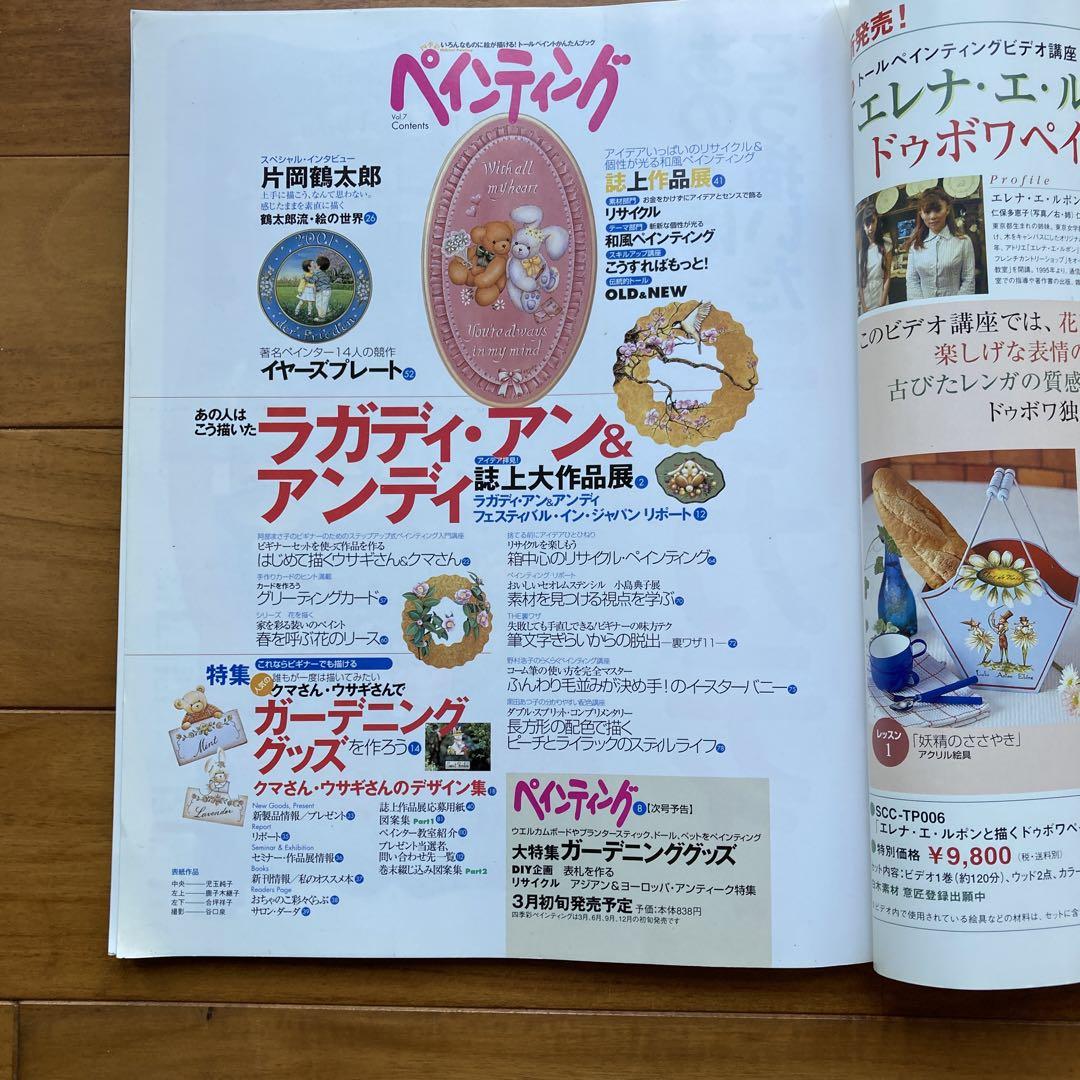 いろんなものに絵が描ける!トールペイントかんたんブック
ペインティング
Vol.7
Contents
スペシャル・インタビュー
片岡鶴太郎
上手に描こう、なんて思わない。
感じたままを素直に描く
鶴太郎流・絵の世界26
2001
der Frieden
著名ペインター14人の競作
イヤーズプレート52
With all
my heart
You're always
in my mind
アイデアいっぱいのリサイクル&
個性が光る和風ペインティング
誌上作品展41
素材部門 お金をかけずにアイデアとセンスで飾る
リサイクル
テーマ部門 斬新な個性が光る
和風ペインティング
スキルアップ講座
こうすればもっと!
伝統的トール
OLD&NEW
あの人は
こう描いた
ラガディ・アン&
アンディ
アイデア拝見!
誌上大作品展2
ラガディ・アン&アンディ
フェスティバル・イン・ジャパン リポート12
阿部まさ子のビギナーのためのステップアップ式ペインティング入門講座
ビギナーセットを使って作品を作る
はじめて描くウサギさん&クマさん22
手作りカードのヒント満載
カードを作ろう
グリーティングカード57
シリーズ 花を描く
家を彩る装いのペイント
春を呼ぶ花のリース60
捨てる前にアイデアひとひねり
リサイクルを楽しもう
箱中心のリサイクル・ペインティング64
ペインティング・リポート
おいしいセオレムステンシル 小島典子展
素材を見つける視点を学ぶ70
THE裏ワザ
失敗しても手直しできる!ビギナーの味方テク
筆文字ぎらいからの脱出—裏ワザ11—72
野村浩子のらくらくペインティング講座
コーム筆の使い方を完全マスター
ふんわり毛並みが決め手!のイースターバニー75
黒田あつ子の分かりやすい配色講座
ダブル・スプリット・コンプリメンタリー
長方形の配色で描く
ピーチとライラックのスティルライフ78
特集
これならビギナーでも描ける
人気の
誰もが一度は描いてみたい
クマさん・ウサギさんで
ガーデニング
グッズを作ろう14
クマさん・ウサギさんのデザイン集18
Mint
Lavender
New Goods, Present
新製品情報/プレゼント33
Report
リポート35
Seminar & Exhibition
セミナー・作品展情報36
Books
新刊情報/私のオススメ本37
Readers Page
おちゃのこ彩々くらぶ38
サロン・ダーダ39
誌上作品展応募用紙40
図案集 Part1 81
ペインター教室紹介110
プレゼント当選者、
問い合わせ先一覧112
巻末綴じ込み図案集 Part2
表紙作品
中央——児玉純子
左上——唐子木継子
左下——合坪祥子
撮影——谷口泉
ペインティング8【次号予告】
ウエルカムボードやプランタースティック、ドール、ペットをペインティング
大特集ガーデニンググッズ
DIY企画 表札を作る
リサイクル アジアン&ヨーロッパ・アンティーク特集
3月初旬発売予定 予価:本体838円
四季彩ペインティングは3月、6月、9月、12月の初旬発売です
発売!
トールペインティングビデオ講座
エレナ・エ・ル
ドゥボワペイ
Profile
エレナ・エ・ルボン
仁保多恵子(写真/右・姉)
東京都生まれの姉妹。東京女学
け、木をキャンバスにしたオリジナ
年、アトリエ「エレナ・エ・ルボン」
フレンチカントリーショップ」をオー
教室」を開講。1995年より、通信
室での指導や著作書の出版、雑
このビデオ講座では、花
楽しげな表情の
古びたレンガの質感
ドゥボワ独
レッスン
1
「妖精のささやき」
アクリル絵具
SCC-TP006
「エレナ・エ・ルボンと描くドゥボワペ
特別価格 ¥9,800(税・送料別)
セット内容:ビデオ1巻(約120分)、ウッド2点、カラー
白木素材 意匠登録出願中
ビデオ内で使用されている絵具などの材料は、セットに含